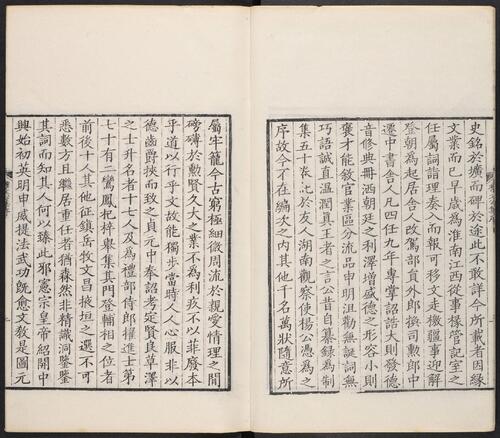 史銘於壙而碑於途此不敢詳今所載者因緣
文業而已早歲為淮南江西從事掾管記室之
任屬詞詣理奏入而報可移文走檄疆事迎解
登朝為起居舍人改駕部員外郎換司勳郎中
遷中書舍人凡四任九年專掌詔誥大則發德
音修典冊洒朝廷之利澤增盛德之形容小則
襃才能敘官業區分流品申明沮勸無誕詞無
巧語誠直溫潤真王者之言公昔自纂録為制
集五十卷託於友人湖南觀察使楊公憑為之
序故今不在編次之內其他千名萬狀隨意所
屬牢籠今古窮極細微周流於親愛情理之間
磅礴於勲賢久大之業不為利疚不以菲廢本
乎道以行乎文故能獨步當時人人心服非以
德齒爵挾而致之貞元中奉詔考定賢良草澤
之士升名者十七人及為禮部侍郎擢進士第
七十有二鸞鳳杞梓舉集其門登輔相之位者
前後十人其他征鎮岳牧文昌掖垣之選不可
悉數方且繼居重任者猶森然非精識洞鑒
其詞而知其人何以臻此邪憲宗皇帝紹開中
興始初英明申威提法武功既愈文教是圖元